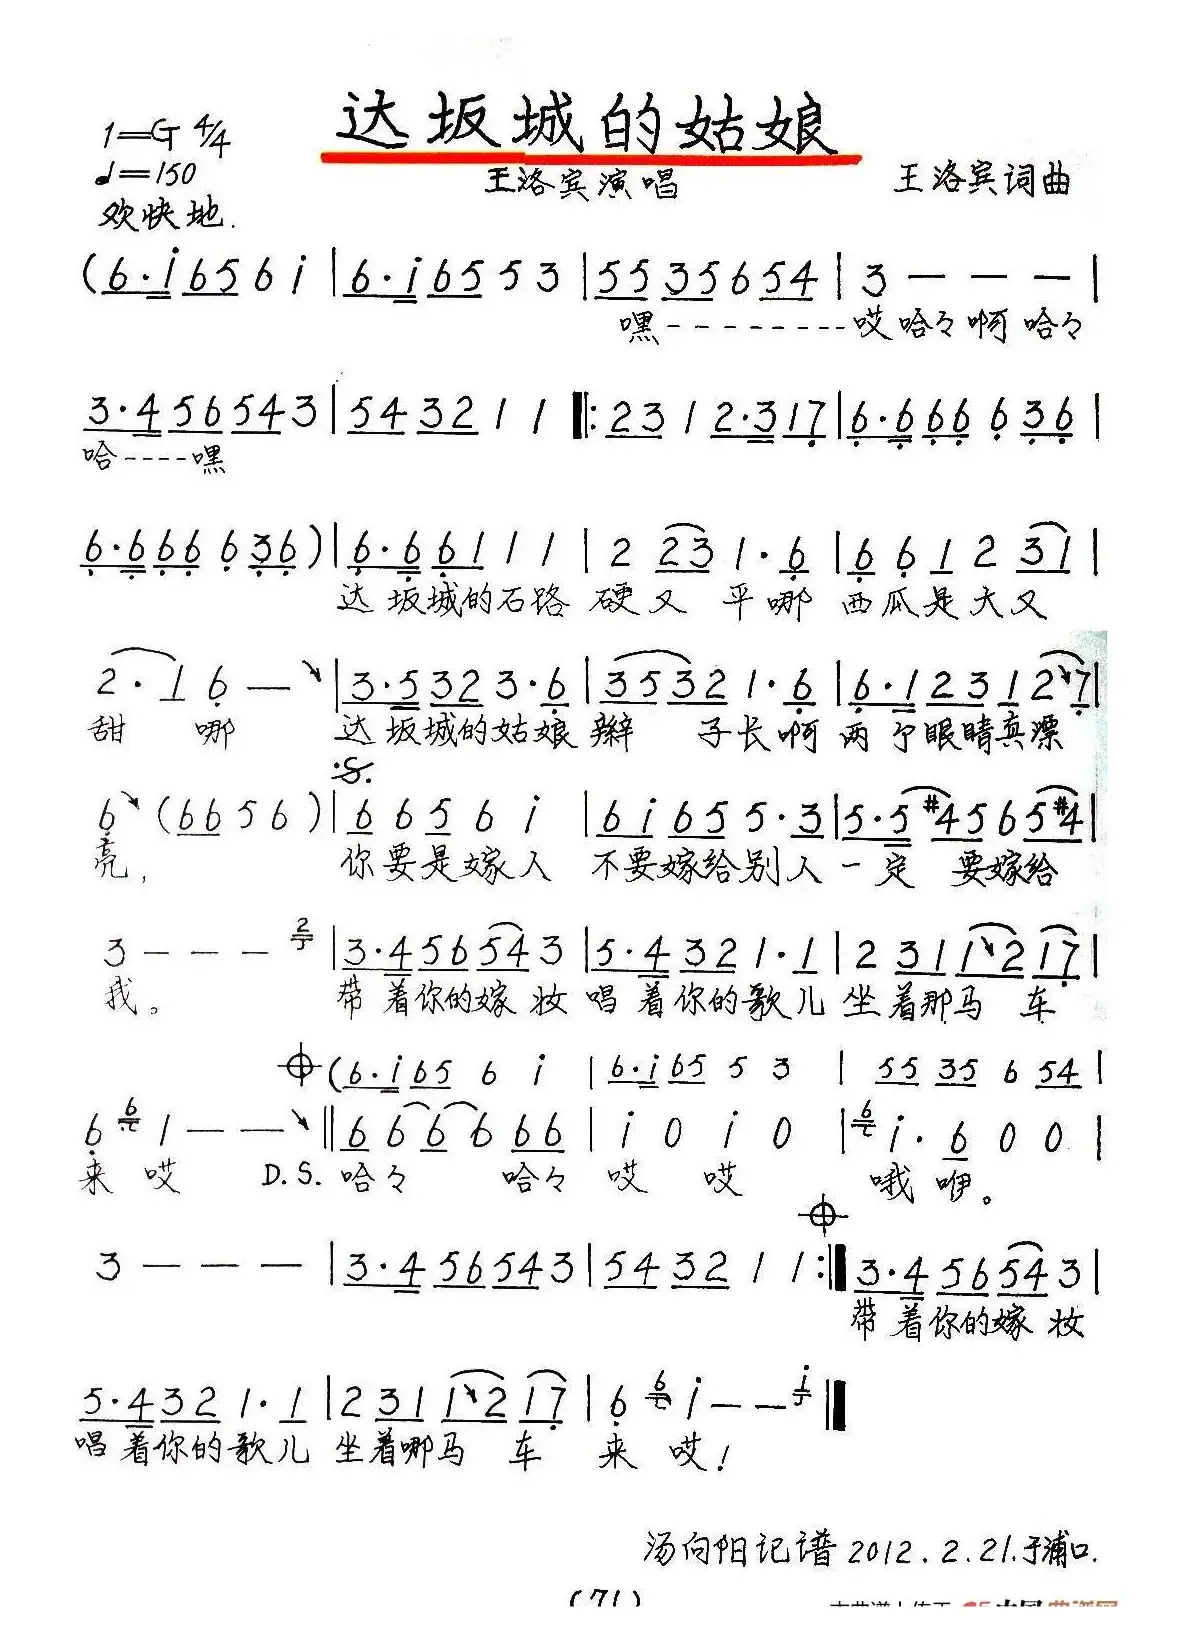 达坂城的姑娘
1=G 4/4
♩=150
王洛宾演唱
王洛宾词曲
欢快地.
(6·i 65 6 i | 6·i 65 5 3 | 55 35 6 54 | 3 — — — |
嘿---------哎哈々啊哈々
3·4 56 54 3 | 54 32 1 1 ‖: 23 1 2·3 17 | 6·6 66 6 36 |
哈----嘿
6·6 66 6 36 ) | 6·6 61 1 1 | 2 23 1·6 | 6 6 1 2 31 |
达坂城的石路硬又平哪西瓜是大又
2·1 6 — | 3·5 32 3·6 | 35 32 1·6 | 6·1 23 1 2 7 |
甜哪达坂城的姑娘辫子长啊两个眼睛真漂
𝄋
6 (66 5 6 ) | 6 6 5 6 i | 6i 65 5·3 | 5·5 #4 5 6 5#4 |
亮,你要是嫁人不要嫁给别人一定要嫁给
3 — — — 2 | 3·4 56 54 3 | 5·4 32 1·1 | 2 31 12 17 |
我。带着你的嫁妆唱着你的歌儿坐着那马车
(6·i 65 6 i | 6·i 65 5 3 | 55 35 6 54 |
6 6 1 — — ‖ 6 6 6 6 66 | i 0 i 0 | 6 i·6 0 0 |
来哎 D.S. 哈々哈々哎哎哦咿。
3 — — — | 3·4 56 54 3 | 54 32 1 1 :‖ 3·4 56 54 3 |
带着你的嫁妆
5·4 32 1·1 | 2 31 12 17 | 6 6 i — — i ‖
唱着你的歌儿坐着哪马车来哎!
汤向阳记谱2012.2.21.于浦口.
(71)